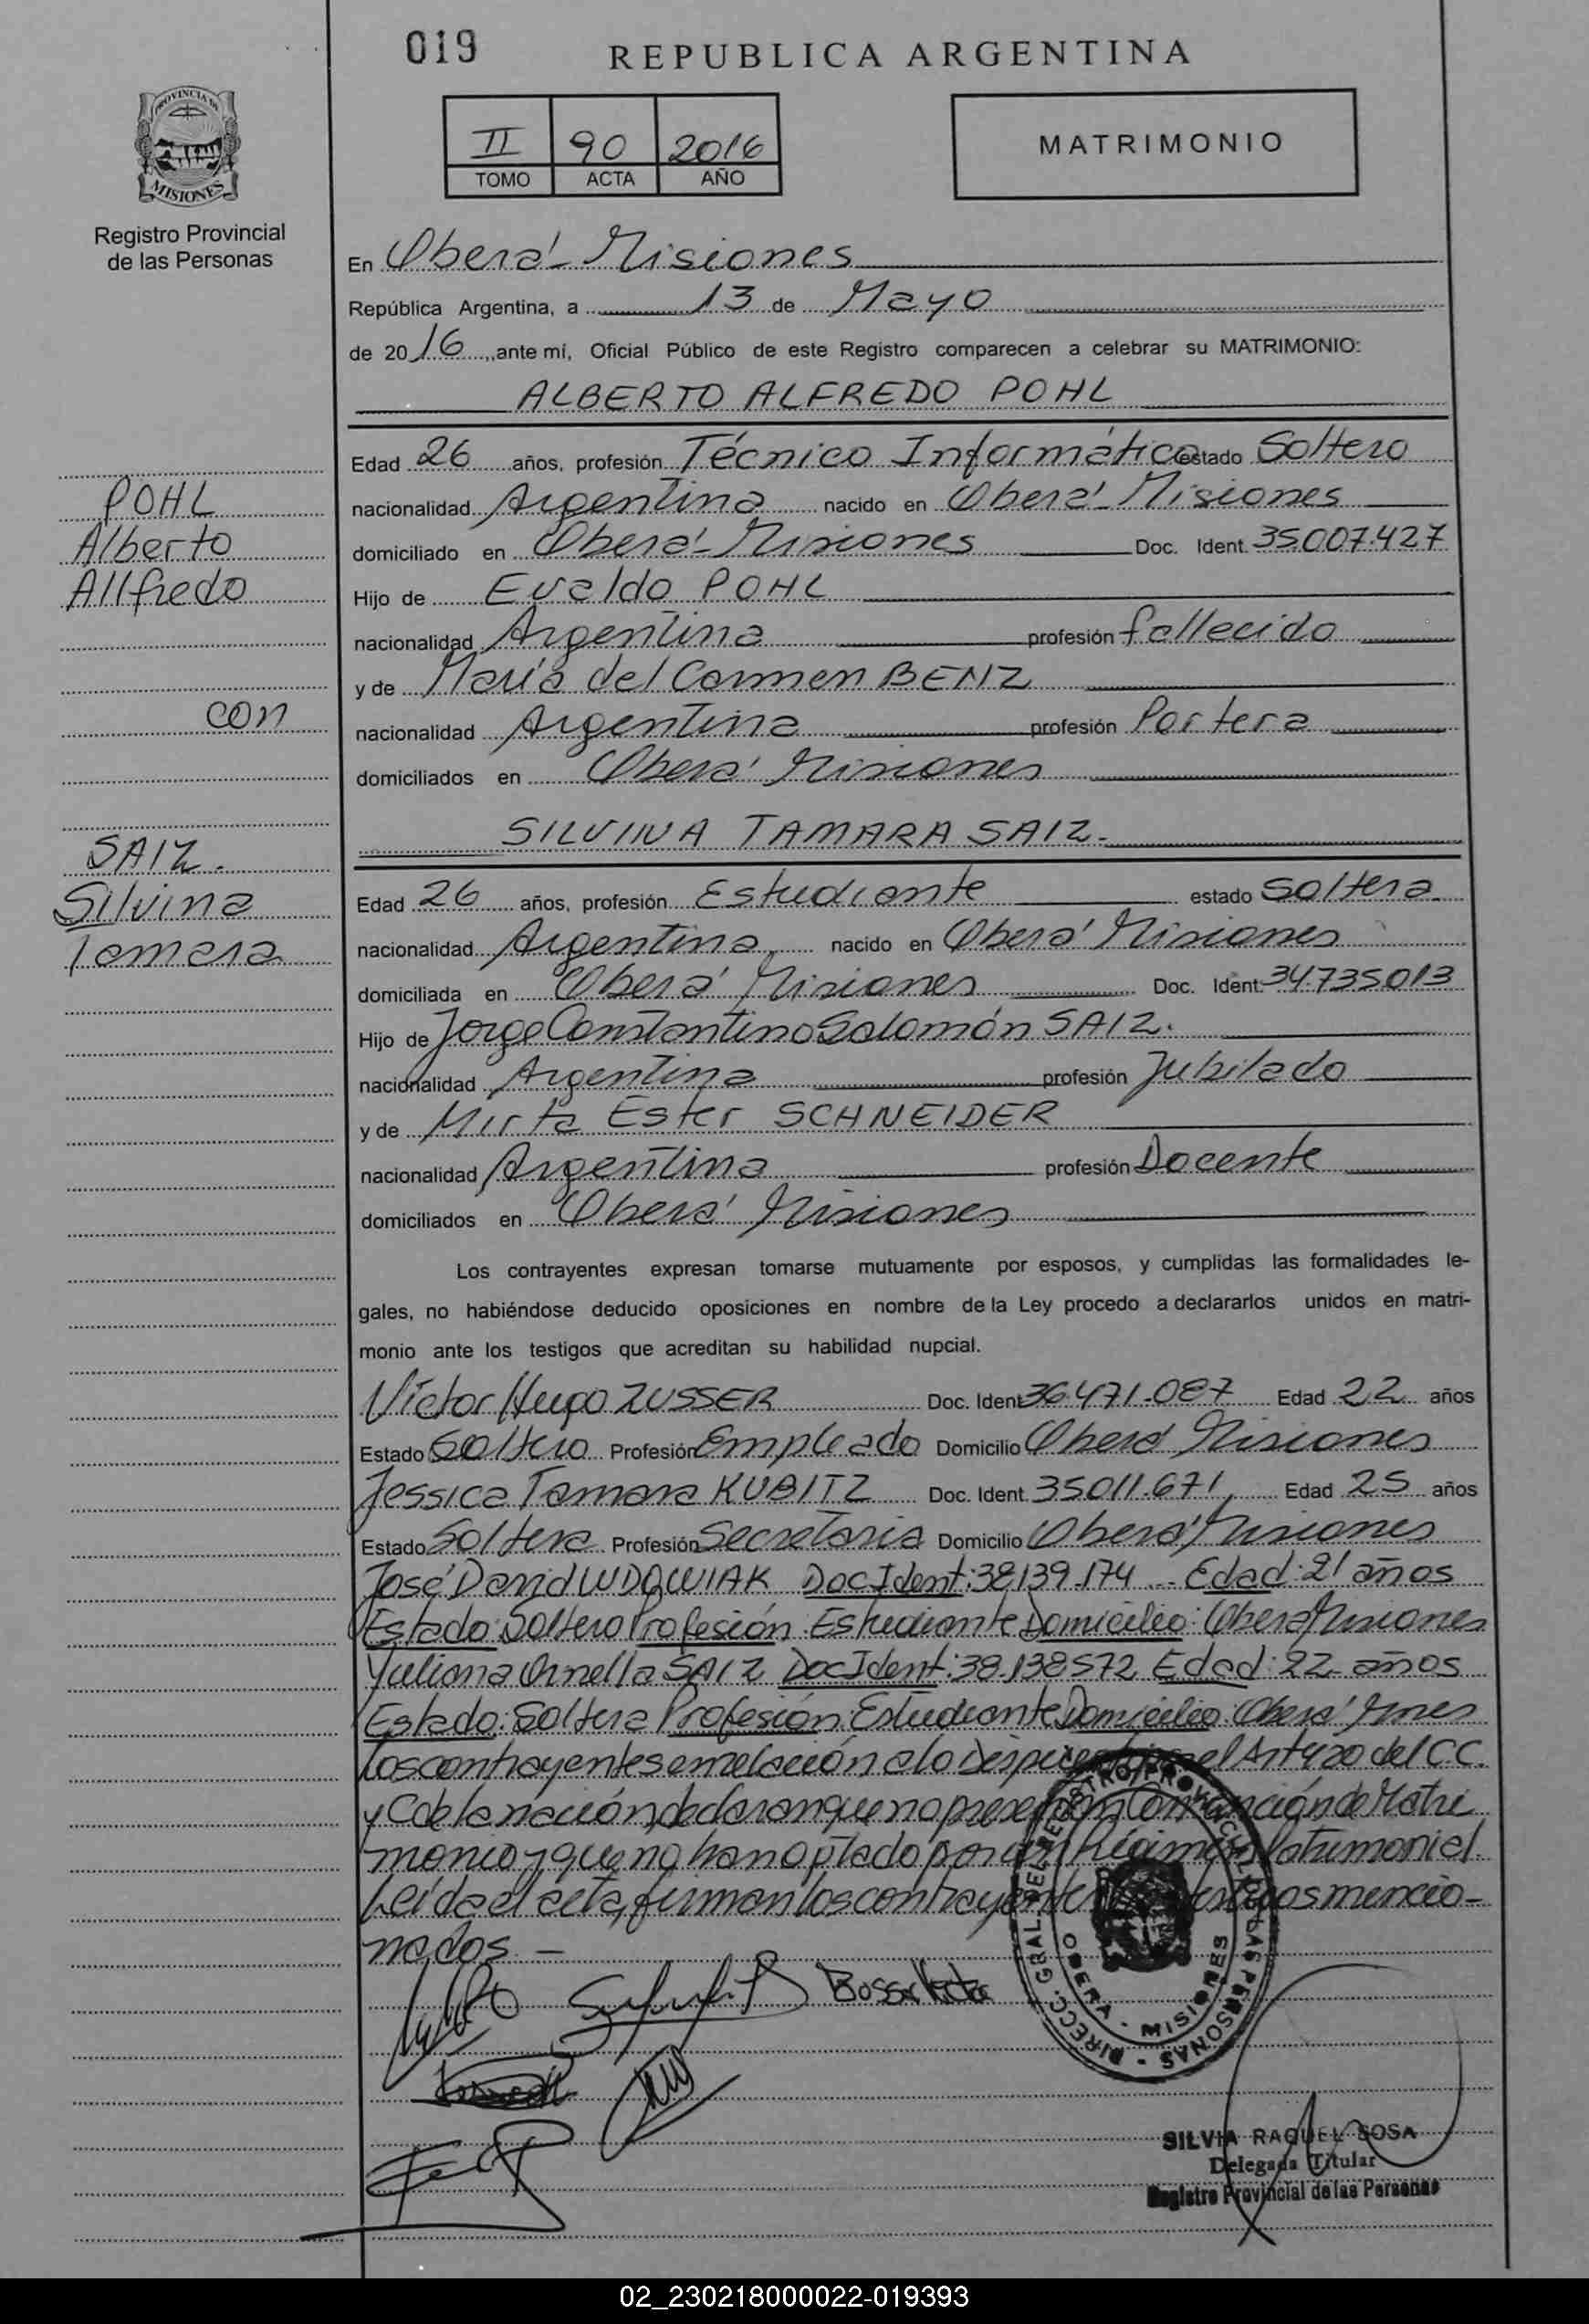 019
REPUBLICA ARGENTINA
PROVINCIA DE
MISIONES
II 90 2016
TOMO ACTA AÑO
MATRIMONIO
Registro Provincial
de las Personas
En Oberá - Misiones
República Argentina, a 13 de Mayo
de 2016, ante mí, Oficial Público de este Registro comparecen a celebrar su MATRIMONIO:
ALBERTO ALFREDO POHL
Edad 26 años, profesión Técnico Informático estado Soltero
POHL
nacionalidad Argentina nacido en Oberá - Misiones
Alberto
domiciliado en Oberá - Misiones Doc. Ident. 35.007.427
Allfredo
Hijo de Evaldo POHL
nacionalidad Argentina profesión fallecido
y de María del Carmen BENZ
con
nacionalidad Argentina profesión Portera
domiciliados en Oberá Misiones
SILVINA TAMARA SAIZ.-
SAIZ.
Silvina
Tamara
Edad 26 años, profesión Estudiante estado Soltera
nacionalidad Argentina nacido en Oberá Misiones
domiciliada en Oberá Misiones Doc. Ident. 34.735.013
Hijo de Jorge Constantino Salomón SAIZ.
nacionalidad Argentina profesión Jubilado
y de Mirta Ester SCHNEIDER
nacionalidad Argentina profesión Docente
domiciliados en Oberá Misiones
Los contrayentes expresan tomarse mutuamente por esposos, y cumplidas las formalidades le-
gales, no habiéndose deducido oposiciones en nombre de la Ley procedo a declararlos unidos en matri-
monio ante los testigos que acreditan su habilidad nupcial.
Víctor Hugo ZUSSER Doc. Ident 36.471.087 Edad 22 años
Estado Soltero Profesión Empleado Domicilio Oberá Misiones
Jessica Tamara KUBITZ Doc. Ident. 35.011.671 Edad 25 años
Estado Soltera Profesión Secretaria Domicilio Oberá Misiones
José David WDOWIAK Doc Ident: 38.139.174 -- Edad: 21 años
Estado: Soltero Profesión: Estudiante Domicilio: Oberá Misiones
Yuliana Ornella SAIZ Doc Ident: 38.138.572 Edad: 22 años
Estado: Soltera Profesión: Estudiante Domicilio: Oberá Mnes
Los contrayentes en relación a lo el Art 420 del C.C.
y C de la nación, declaran que no presentan Convención de Matri
monio y que no han optado por un Régimen Patrimonial.
Leída el acta, firman los contrayentes testigos mencio-
nados. -
DIRECC. GRAL. DEL REGISTRO PROVINCIAL DE LAS PERSONAS
OBERA - MISIONES
SILVIA RAQUEL SOSA
Delegada Titular
Registro Provincial de las Personas
02_230218000022-019393